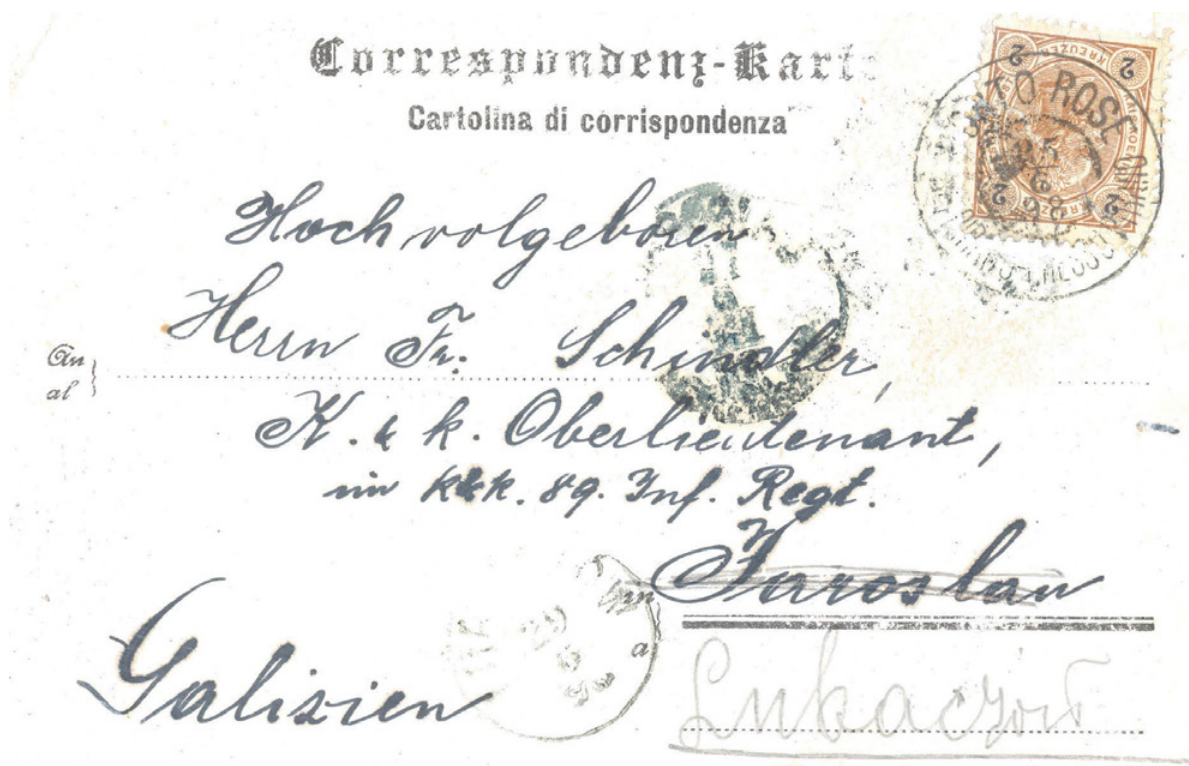 Correspondenz-Karte
Cartolina di corrispondenza
2 KREUZER 2
2 2
PORTO ROSE
Hochwolgeboren
Herrn Fr. Schindler,
An
al
K. & k. Oberlieutenant,
im k&k. 89. Inf. Regt.
in Jaroslau
a
Galizien